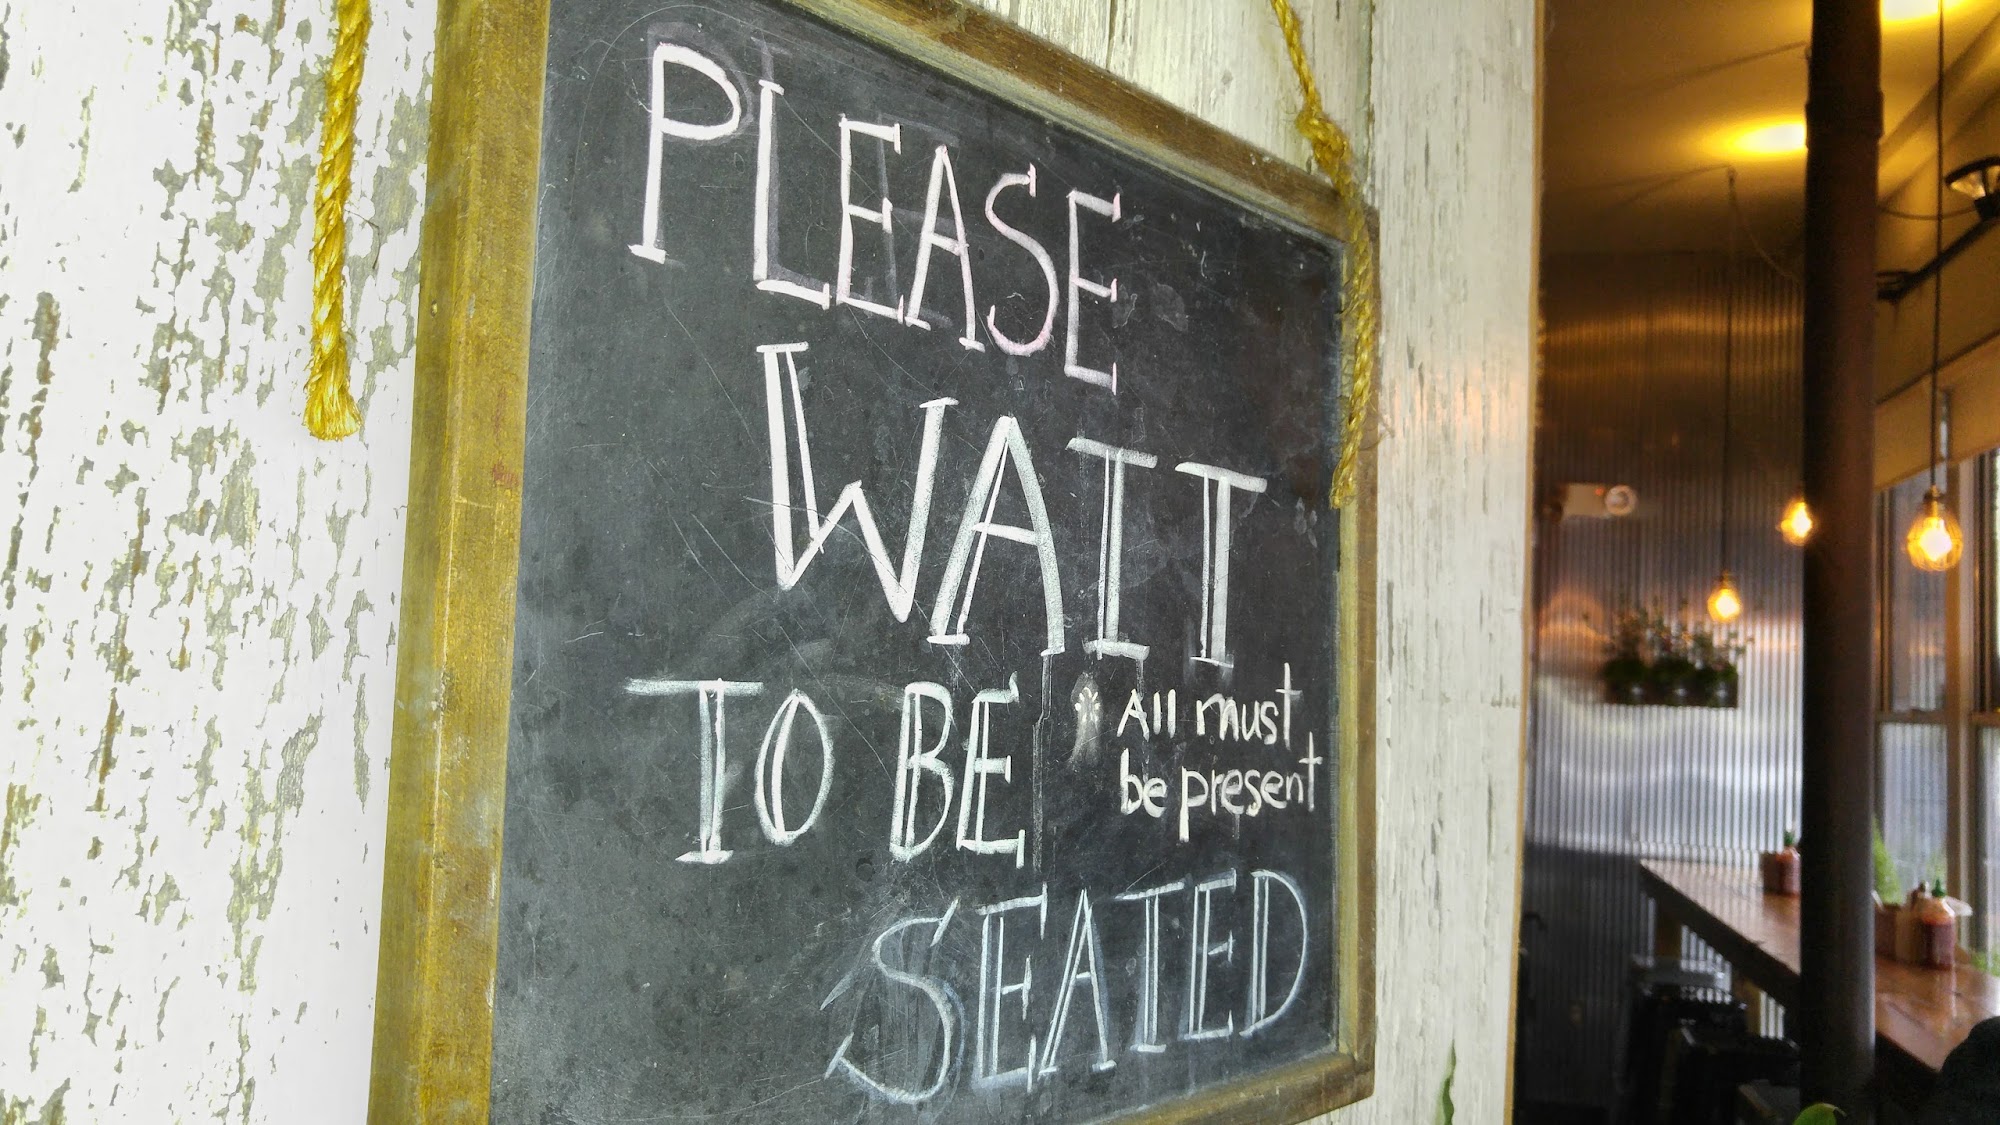 PLEASE
WAIT
TO BE
All must
be present
SEATED